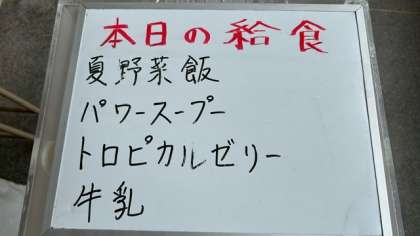 本日の給食
夏野菜飯
パワースープー
トロピカルゼリー
牛乳